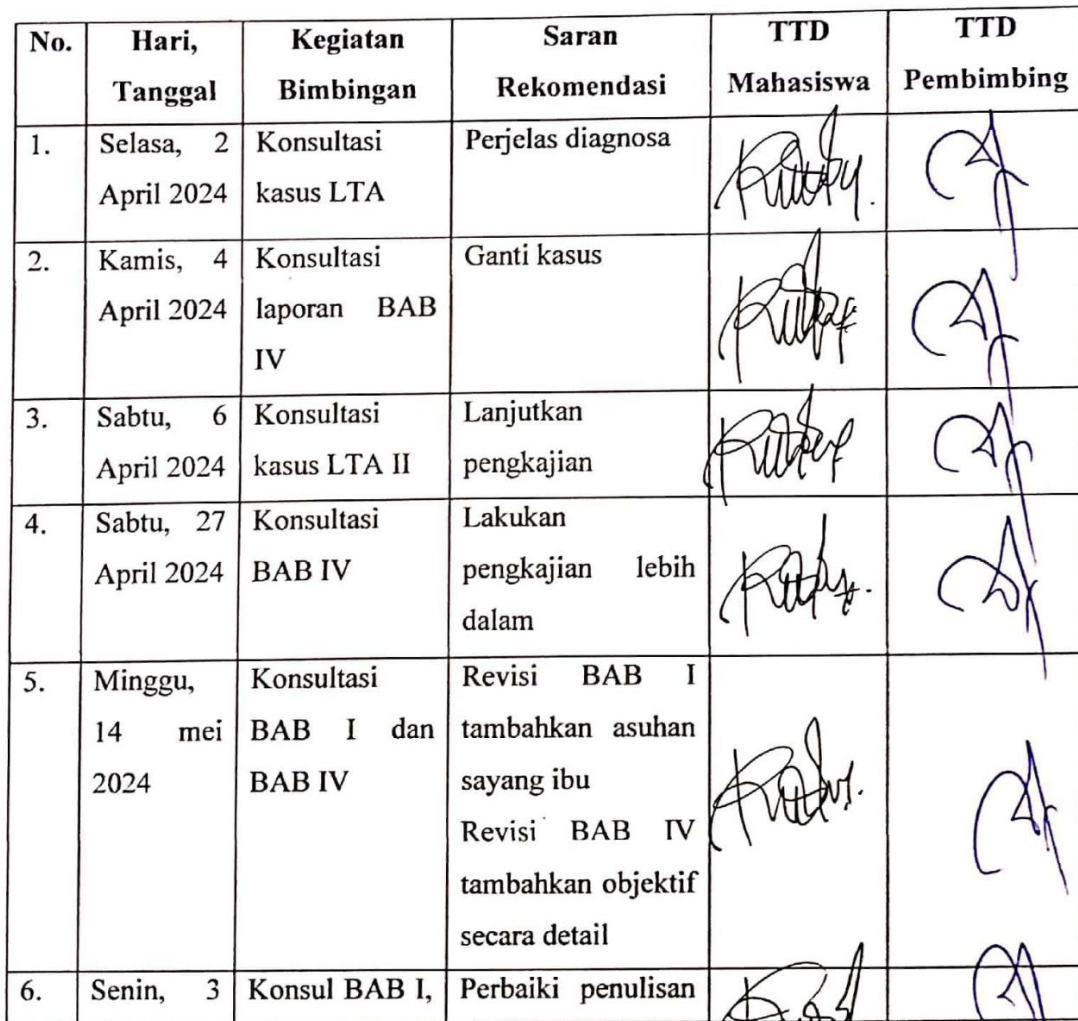 No. Hari, Tanggal Kegiatan Bimbingan Saran Rekomendasi TTD Mahasiswa TTD Pembimbing
1. Selasa, 2 April 2024 Konsultasi kasus LTA Perjelas diagnosa
2. Kamis, 4 April 2024 Konsultasi laporan BAB IV Ganti kasus
3. Sabtu, 6 April 2024 Konsultasi kasus LTA II Lanjutkan pengkajian
4. Sabtu, 27 April 2024 Konsultasi BAB IV Lakukan pengkajian lebih dalam
5. Minggu, 14 mei 2024 Konsultasi BAB I dan BAB IV Revisi BAB I tambahkan asuhan sayang ibu Revisi BAB IV tambahkan objektif secara detail
6. Senin, 3 Konsul BAB I, Perbaiki penulisan